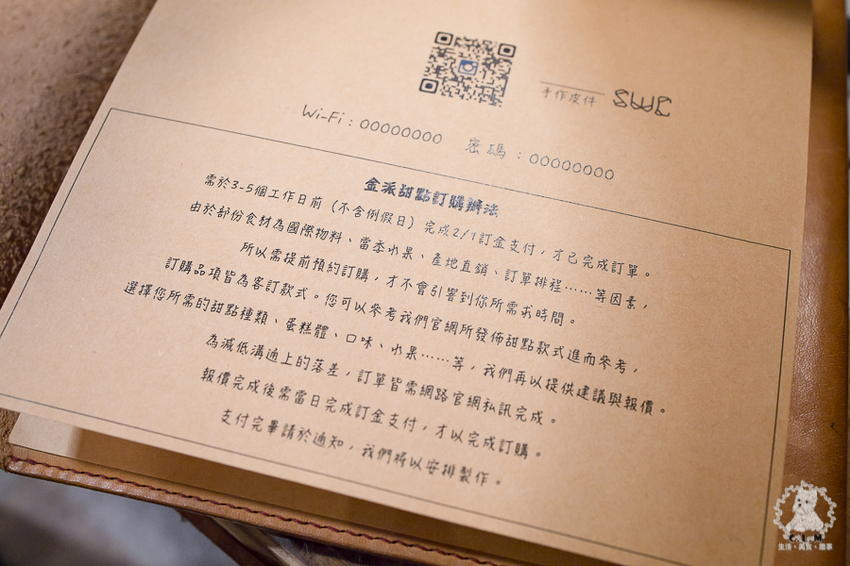 手作皮件
Wi-Fi：00000000 密碼：00000000
金派甜點訂購辦法
需於3-5個工作日前（不含例假日）完成2/1訂金支付，才已完成訂單。
由於部份食材為國際物料、當季水果、產地直銷、訂單排程……等因素，
所以需提前預約訂購，才不會引響到你所需求時間。
訂購品項皆為客訂款式。您可以參考我們官網所發佈甜點款式進而參考，
選擇您所需的甜點種類、蛋糕體、口味、水果……等，我們再以提供建議與報價。
為減低溝通上的落差，訂單皆需網路官網私訊完成。
報價完成後需當日完成訂金支付，才以完成訂購。
支付完畢請於通知，我們將以安排製作。
生活、美食、趣事